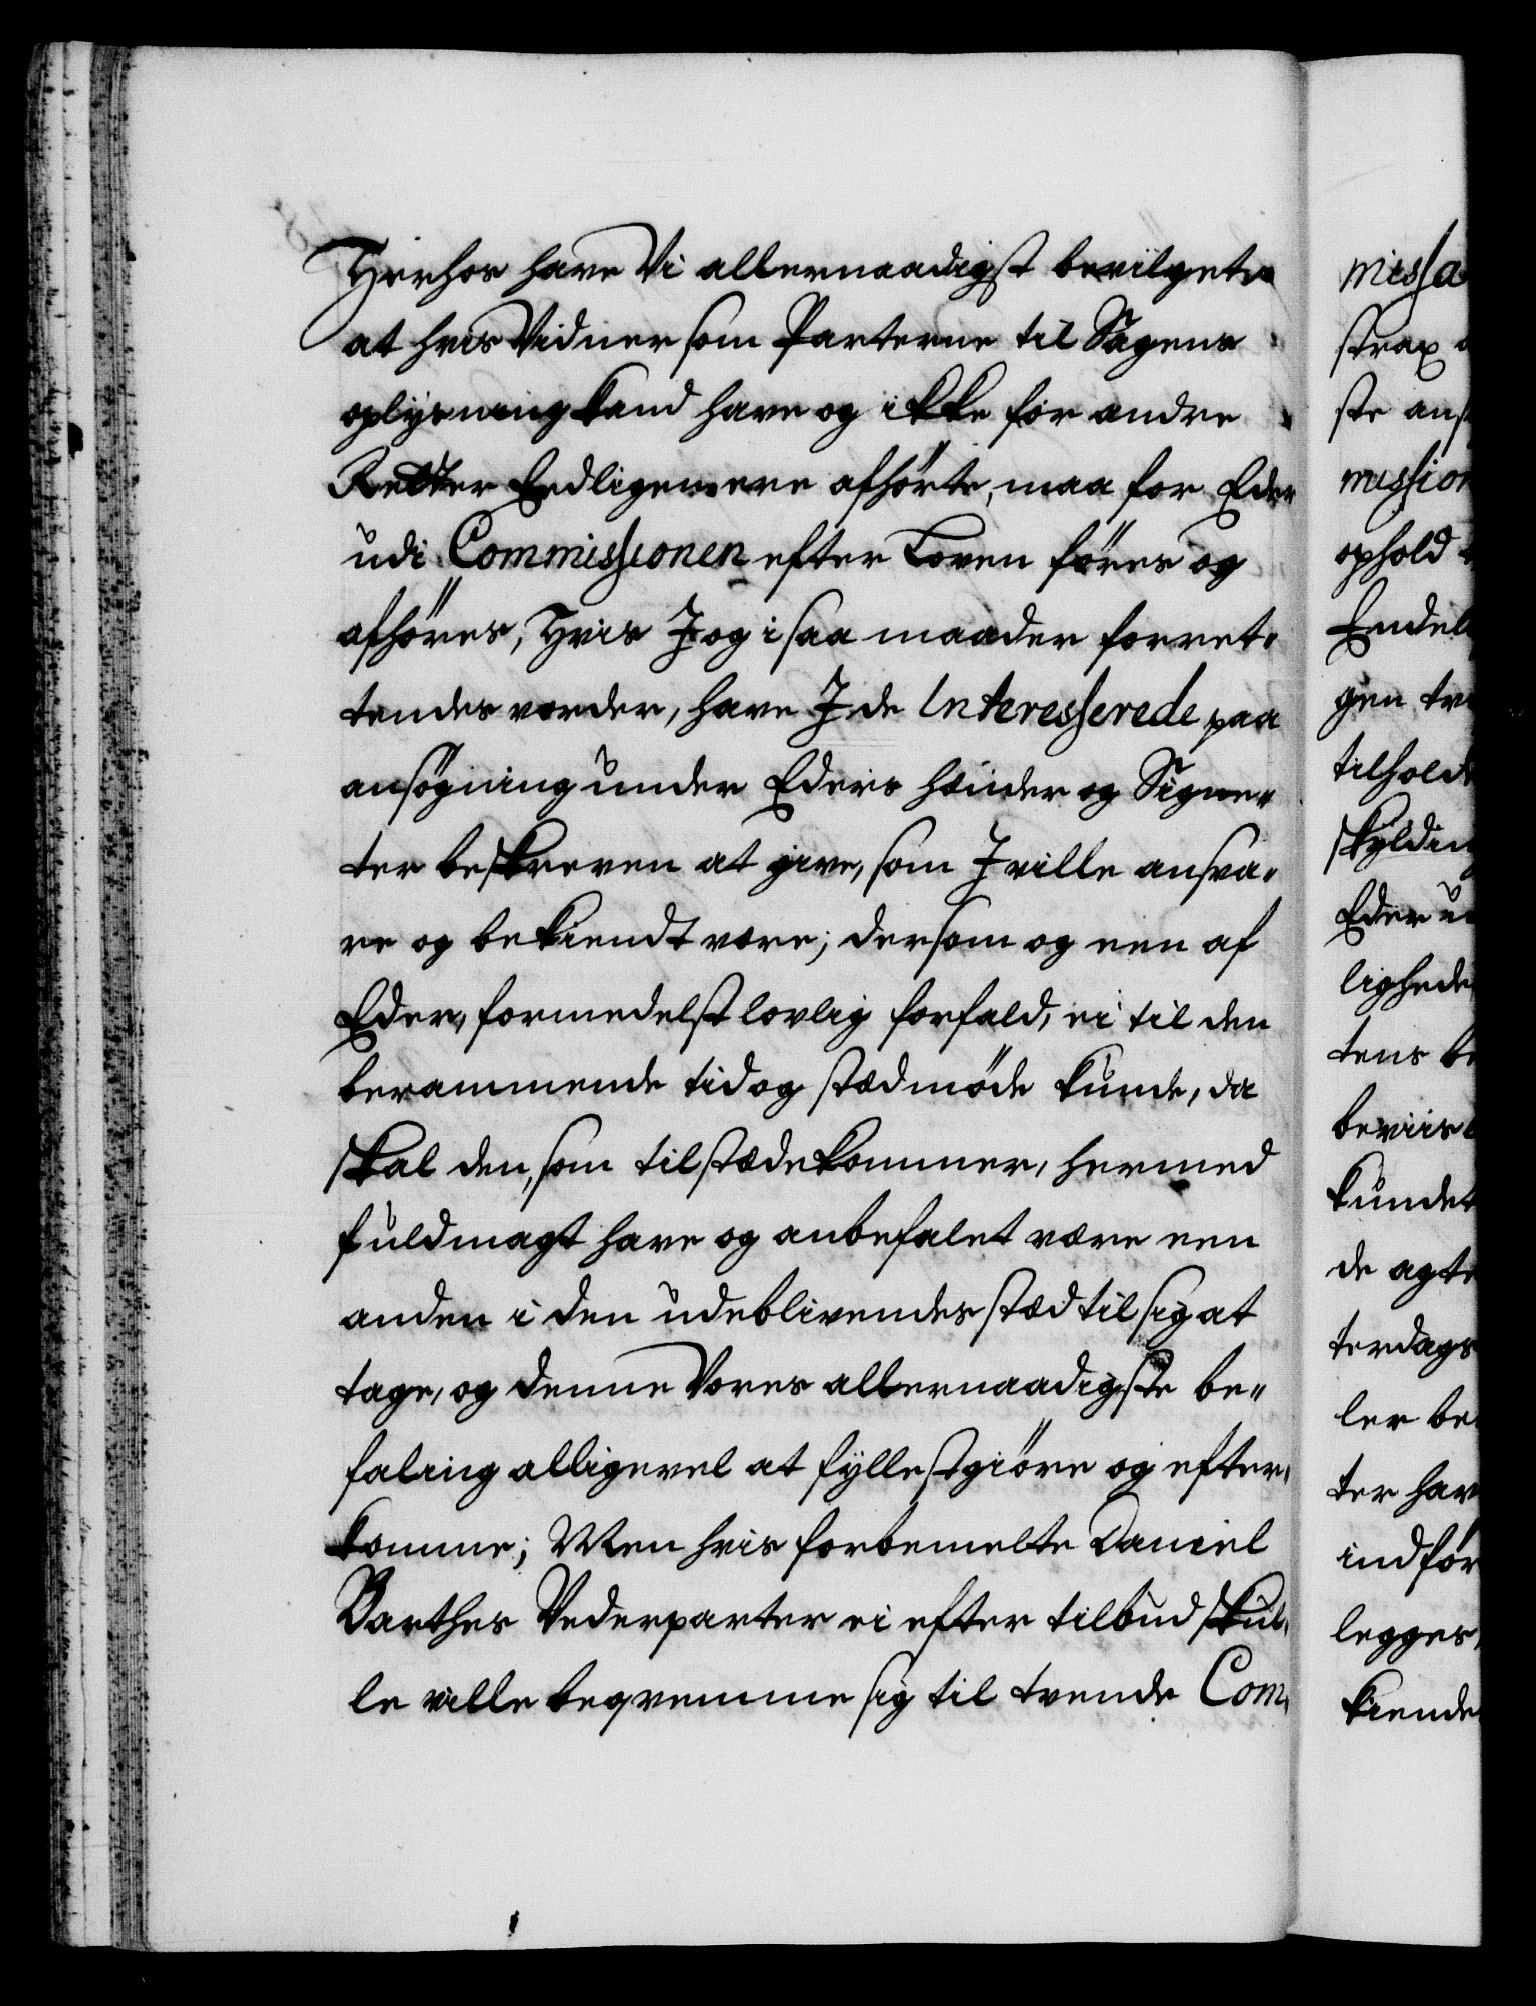 Herhos have Vi allernaadigst bevilget,
at hvis Vidner som Parterne til Sagens
oplysning kand have og ikke for andre
Retter Eedligen ere afhørte, maa for Eder
udi Commissionen efter Loven føres og
afhøres, Hvis I og i saa maader forret„
tendes vorder, have I de Interesserede paa
ansøgning under Eders hænder og Signe„
ter beskreven at give, som I ville ansva„
re og bekiendt være; dersom og een af
Eder, formedelst lovlig forfald, ei til den
berammende tid og stæd møde kunde, da
skal den, som tilstædekommer, hermed
fuldmagt have og anbefalet være een
anden i den udeblivendes stæd til sig at
tage, og denne Vores allernaadigste be„
faling alligevel at fyllestgiøre og efter„
komme; Men hvis forbemelte Daniel
Barthes Vederparter ei efter tilbud skul„
le ville beqvemme sig til tvende Com„
missa
strax
ste
mission
ophold
Endel
gen
tilhold
skyldin
Eder
lighede
tens
beviis
kundet
de agte
terdags
ler be
ter hav
indfør
legges,
kiende